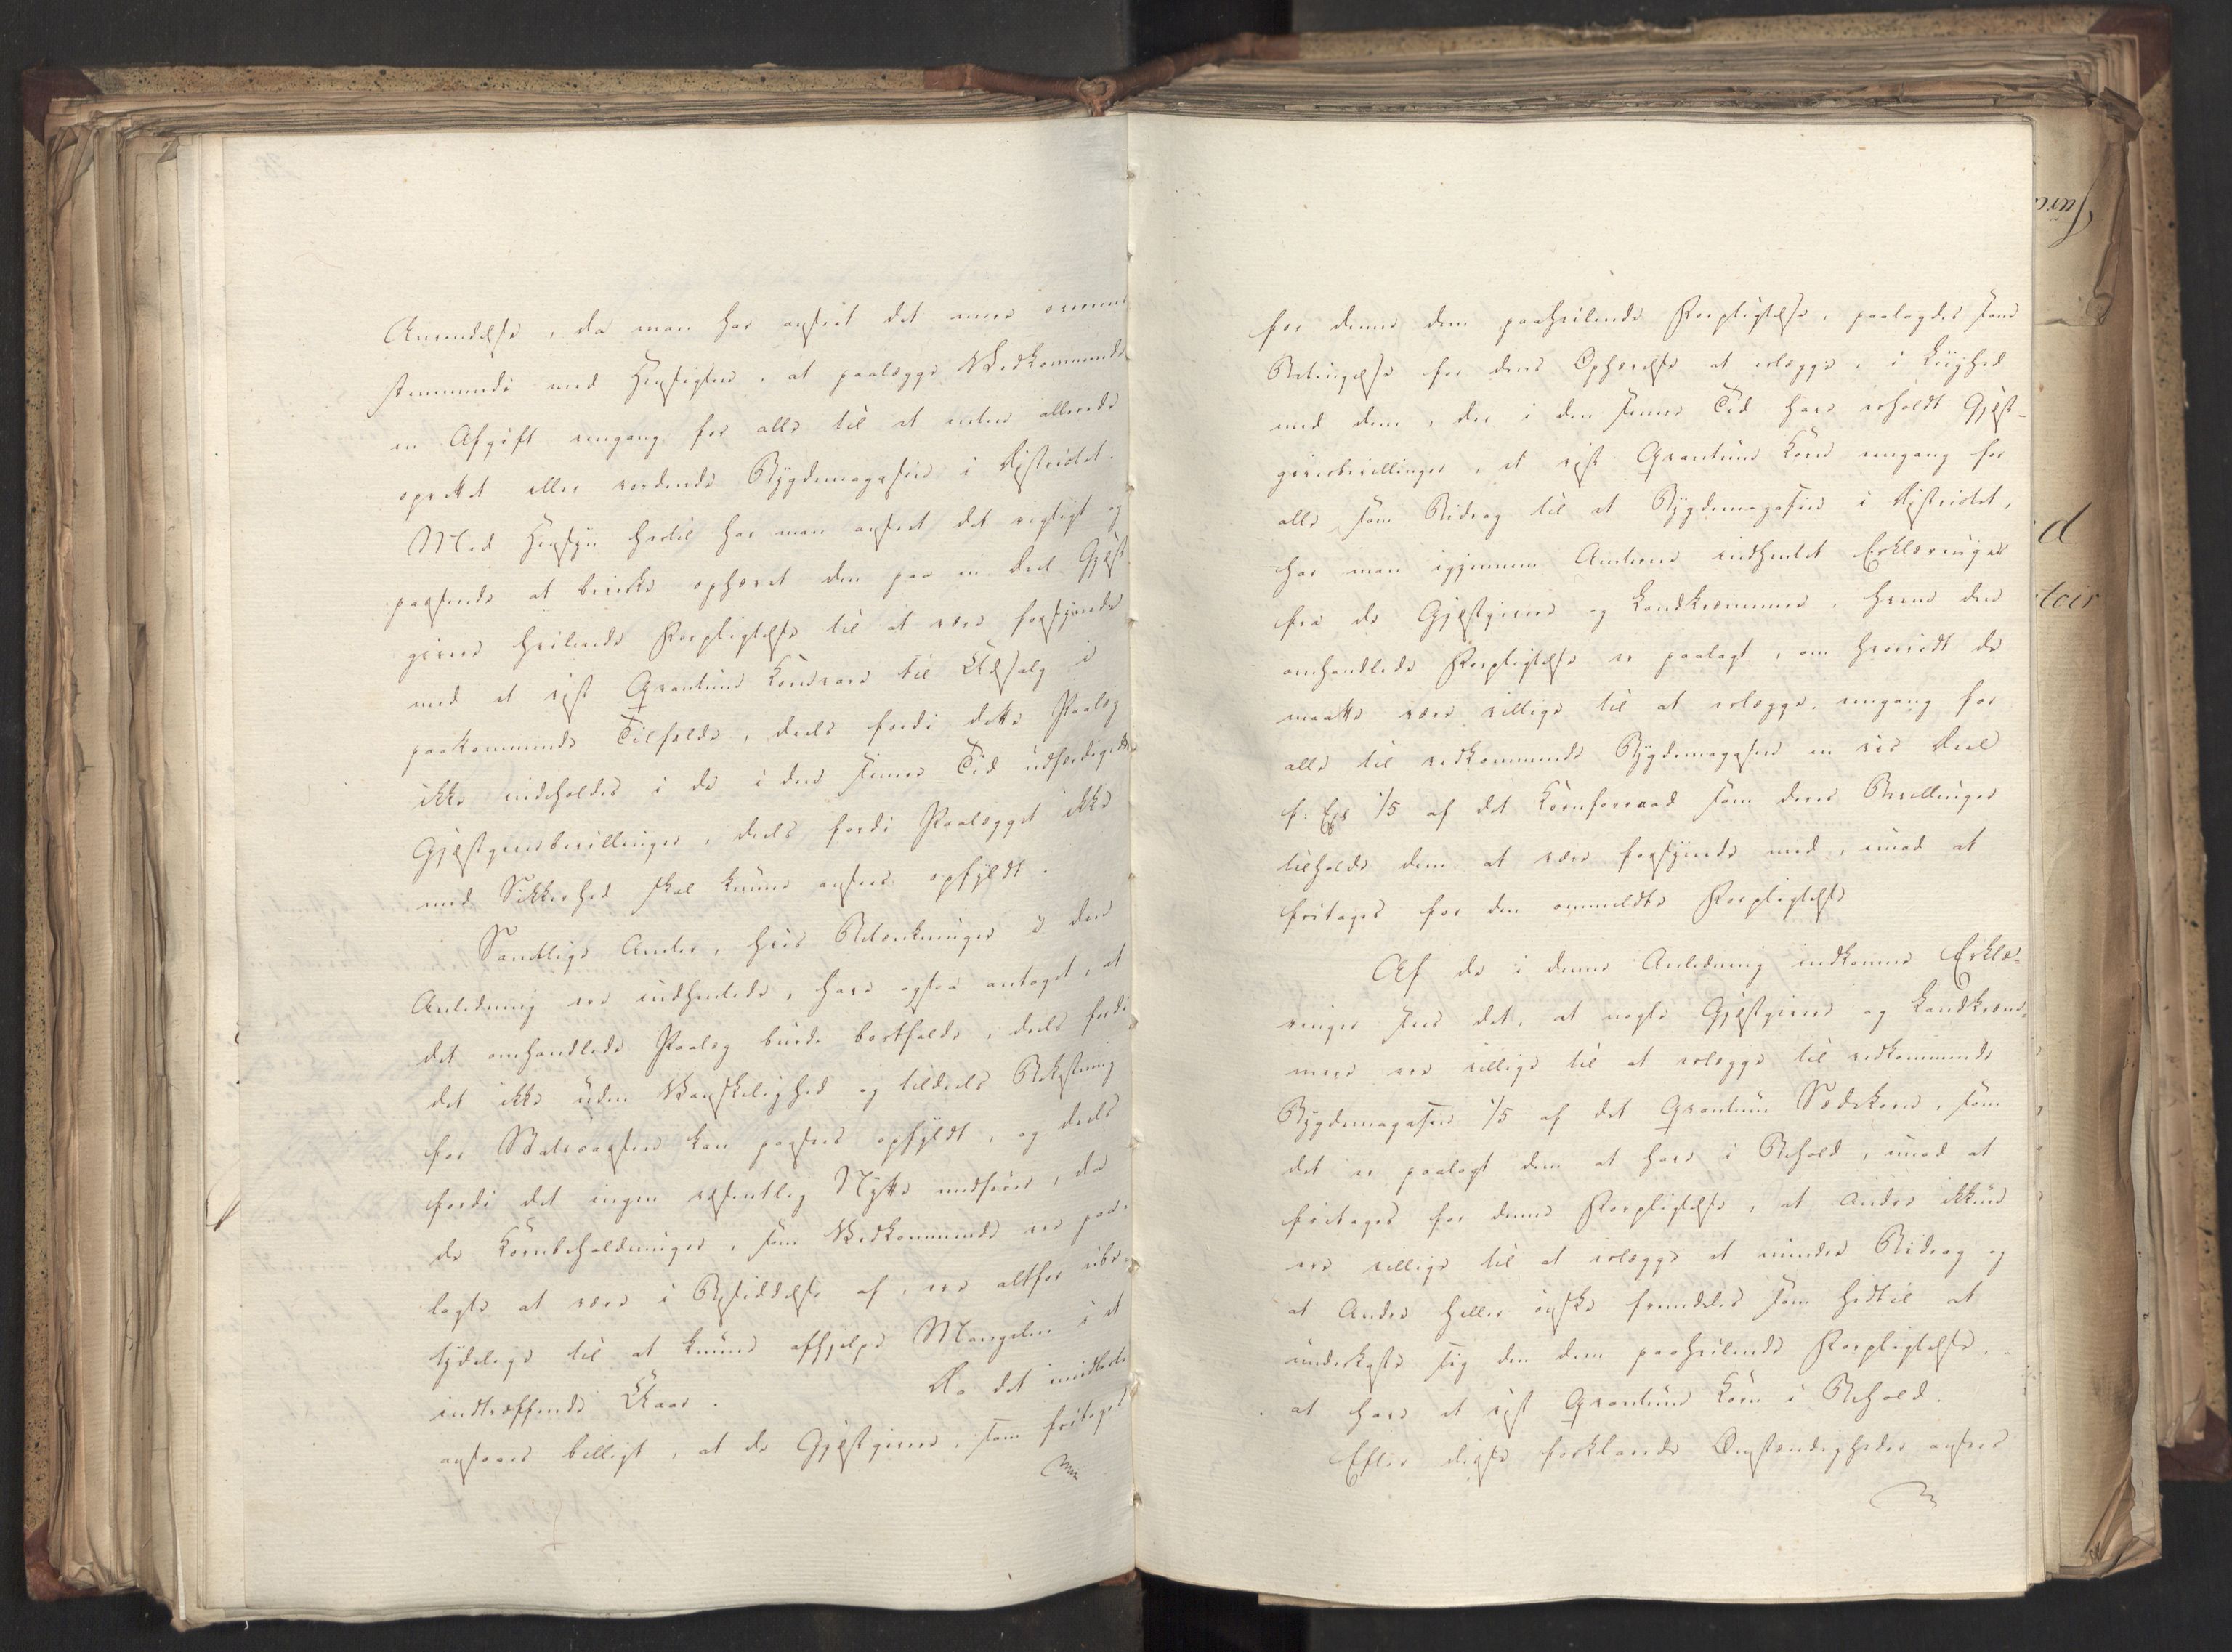 Anvendelse, da man har anseet det mere overeens
stemmende med Hensigten, at paalægge Vedkommende
en Afgift eengang for alle til et enten allerede
oprettet eller vordende Bygdemagasin i Distriktet.
Med Hensyn hertil har man anseet det rigtigt og
passende at bevirke ophævet den paa en Deel Gjæst-
givere hvilende Forpligtelse til at være forsynede
med et vist Qvantum Kornvare til Udsalg i
paakommende Tilfælde, deels fordi dette Paalæg
ikke indeholdes i de i den senere Tid udfærdigede
Gjæstgiverbevillinger, deels fordi Paalægget ikke
med Sikkerhed skal kunne ansees opfyldt.
Samtlige Amter, hvis Betænkninger i den
Anledning ere indhentede, have ogsaa antaget, at
det omhandlede Paalæg burde bortfalde, deels fordi
det ikke uden Vanskelighed og tildeels Bekostning
for Vedkommende kan paasees opfyldt, og deels
fordi det ingen væsentlig Nytte medfører, da
de Kornbeholdninger, som Vedkommende ere paa-
lagte at være i Besiddelse af, ere altfor ube-
tydelige til at kunne afhjelpe Mangelen i et
indtræffende Uaar.
Da det imidlertid
ansaaes billigt, at de Gjæstgivere, som fritages
for denne dem paahvilende Forpligtelse, paalagdes som
Betingelse for dens Ophævelse at erlægge, i Liighed
med dem, der i den senere Tid have erholdt Gjæst-
giverbevillinger, et vist Qvantum Korn eengang for
alle som Bidrag til et Bygdemagasin i Distriktet,
har man igjennem Amterne indhentet Erklæringer
fra de Gjæstgivere og Landkræmmere, hvem den
omhandlede Forpligtelse er paalagt, om hvorvidt de
maatte være villige til at erlægge, eengang for
alle til vedkommende Bygdemagasin en vis Deel
f: Ex 1/5 af det Kornforraad som deres Bevillinger
tilholde dem at være forsynede med, imod at
fritages for den ommeldte Forpligtelse
Af de i denne Anledning indkomne Erklæ-
ringer sees det, at nogle Gjæstgivere og Landkræm-
mere ere villige til at erlægge til vedkommende
Bygdemagasin 1/5 af det Qvantum Sædekorn, som
det er paalagt dem at have i Behold, imod at
fritages for denne Forpligtelse, at Andre ikkun
ere villige til at erlægge et mindre Bidrag og
at Andre heller ønske fremdeles som hidtil at
underkaste sig den dem paahvilende Forpligtelse,
at have et vist Qvantum Korn i Behold.
Efter disse forklarede Omstændigheder ansees